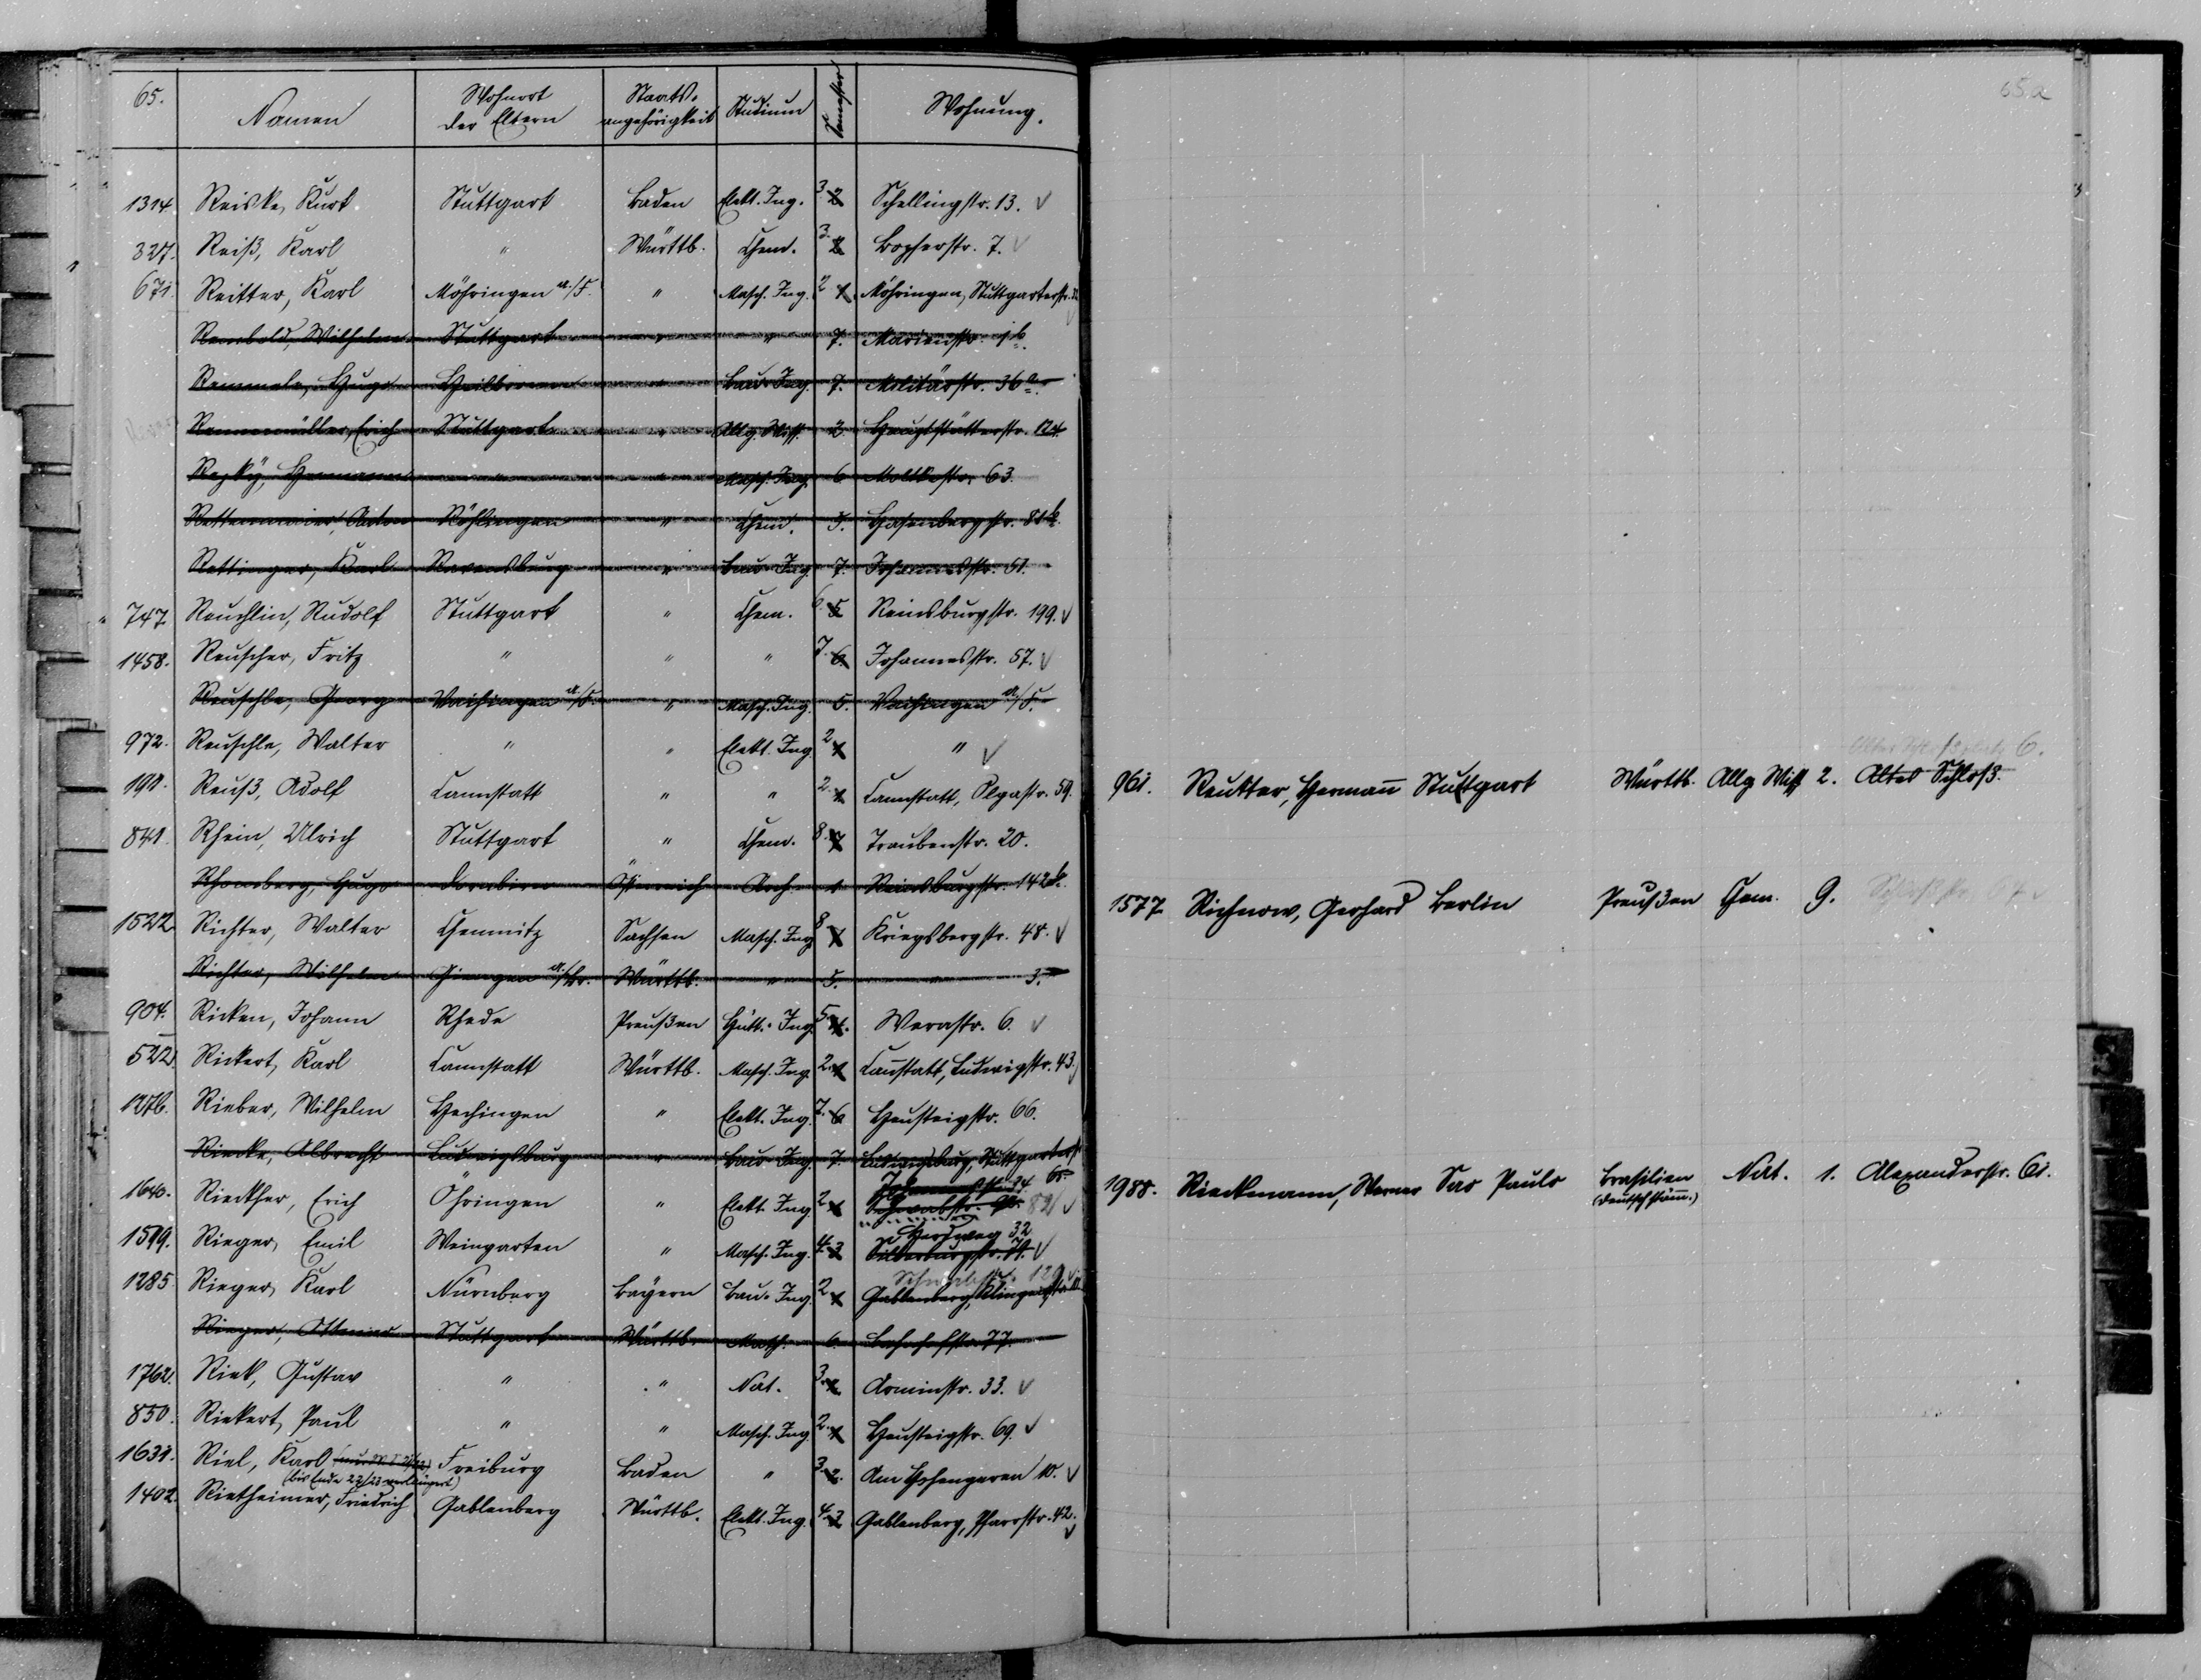 65. Namen Wohnort der Eltern Staats-angehörigkeit Studium Semester Wohnung.
1314. Reiske, Kurt Stuttgart Baden Elekt. Ing. 3. 2 Schellingstr. 13. √
327. Reiß, Karl " Württb. Chem. 3. 2 Bopserstr. 7. √
671. Reitter, Karl Möhringen a/F. " Masch. Ing. 2 1 Möhringen, Stuttgarterstr. √
Rembold, Wilhelm Stuttgart " " 7. Marienstr. 1b.
Remmele, Hugo Heilbronn " Bau-Ing. 7. Militärstr. 36a.
Rennmüller, Erich Stuttgart " Allg. Wiss. 2 Hauptstätterstr. 124.
Repky, Hermann " " Masch. Ing. 6 Moltkestr. 63.
Rettenmaier, Anton Röhlingen " Chem. 5. Hasenbergstr. 81b.
Rettinger, Karl Ravensburg " Bau-Ing. 7. Johannesstr. 51.
747. Reuchlin, Rudolf Stuttgart " Chem. 6. 5 Reinsburgstr. 199. √
1458. Reuscher, Fritz " " " 7. 6. Johannesstr. 57. √
Reuschle, Georg Vaihingen a/F. " Masch. Ing. 5. Vaihingen a/F.
972. Reuschle, Walter " " Elekt. Ing. 2 1 " √
191. Reuß, Adolf Cannstatt " " 2. 1 Cannstatt, Olgastr. 59.
841. Rhein, Ulrich Stuttgart " Chem. 8. 7 Traubenstr. 20.
Rhomberg, Hugo Dornbirn Österreich Arch. 1 Reinsburgstr. 142b.
1522. Richter, Walter Chemnitz Sachsen Masch. Ing. 8 7 Kriegsbergstr. 48. √
Richter, Wilhelm Giengen a./Br. Württb. " 5. " 3.
904. Ricken, Johann Rhede Preußen Hütt.-Ing. 5. 4. Werastr. 6. √
522. Rickert, Karl Cannstatt Württb. Masch. Ing. 2. 1 Canstatt, Ludwigstr. 43.
1276. Rieber, Wilhelm Hechingen " Elekt. Ing. 7. 6 Heusteigstr. 66.
Riecke, Albrecht Ludwigsburg " Bau-Ing. 7. Ludwigsburg, Stuttgarterstr. 65.
1640. Rieckher, Erich Öhringen " Elekt. Ing. 2 1 Schwabstr. 82 √
1519. Rieger, Emil Weingarten " Masch. Ing. 4. 3 Herdweg 32 Silberburgstr. √
1285. Rieger, Karl Nürnberg Bayern Bau-Ing. 2 1 Schwabstr. 129 √ Gablenberg, Klingenstr.
Rieger, Ottmar Stuttgart Württb. Math. 6. Bahnhofstr. 77.
1762. Riek, Gustav " " Nat. 3. 2. Arminstr. 33. √
850. Riekert, Paul " " Masch. Ing. 2. 1 Heusteigstr. 69. √
1631. Riel, Karl Freiburg Baden " 3. 2. Am Hohengeren 10. √
(bis Ende 22/23 verlängert)
1402. Rietheimer, Friedrich Gablenberg Württb. Elekt. Ing. 4. 3 Gablenberg, Pfarrstr. 42. √
65a
Altes Schloßplatz 6.
961. Reutter, Hermañ Stuttgart Württb. Allg. Wiss 2. Altes Schloß.
1577. Richnow, Gerhard Berlin Preußen Chem. 9. Schloßstr. 67 √
1988. Rieckmann, Werner Sao Paulo Brasilien Nat. 1. Alexanderstr. 61.
(deutschstäm̄.)